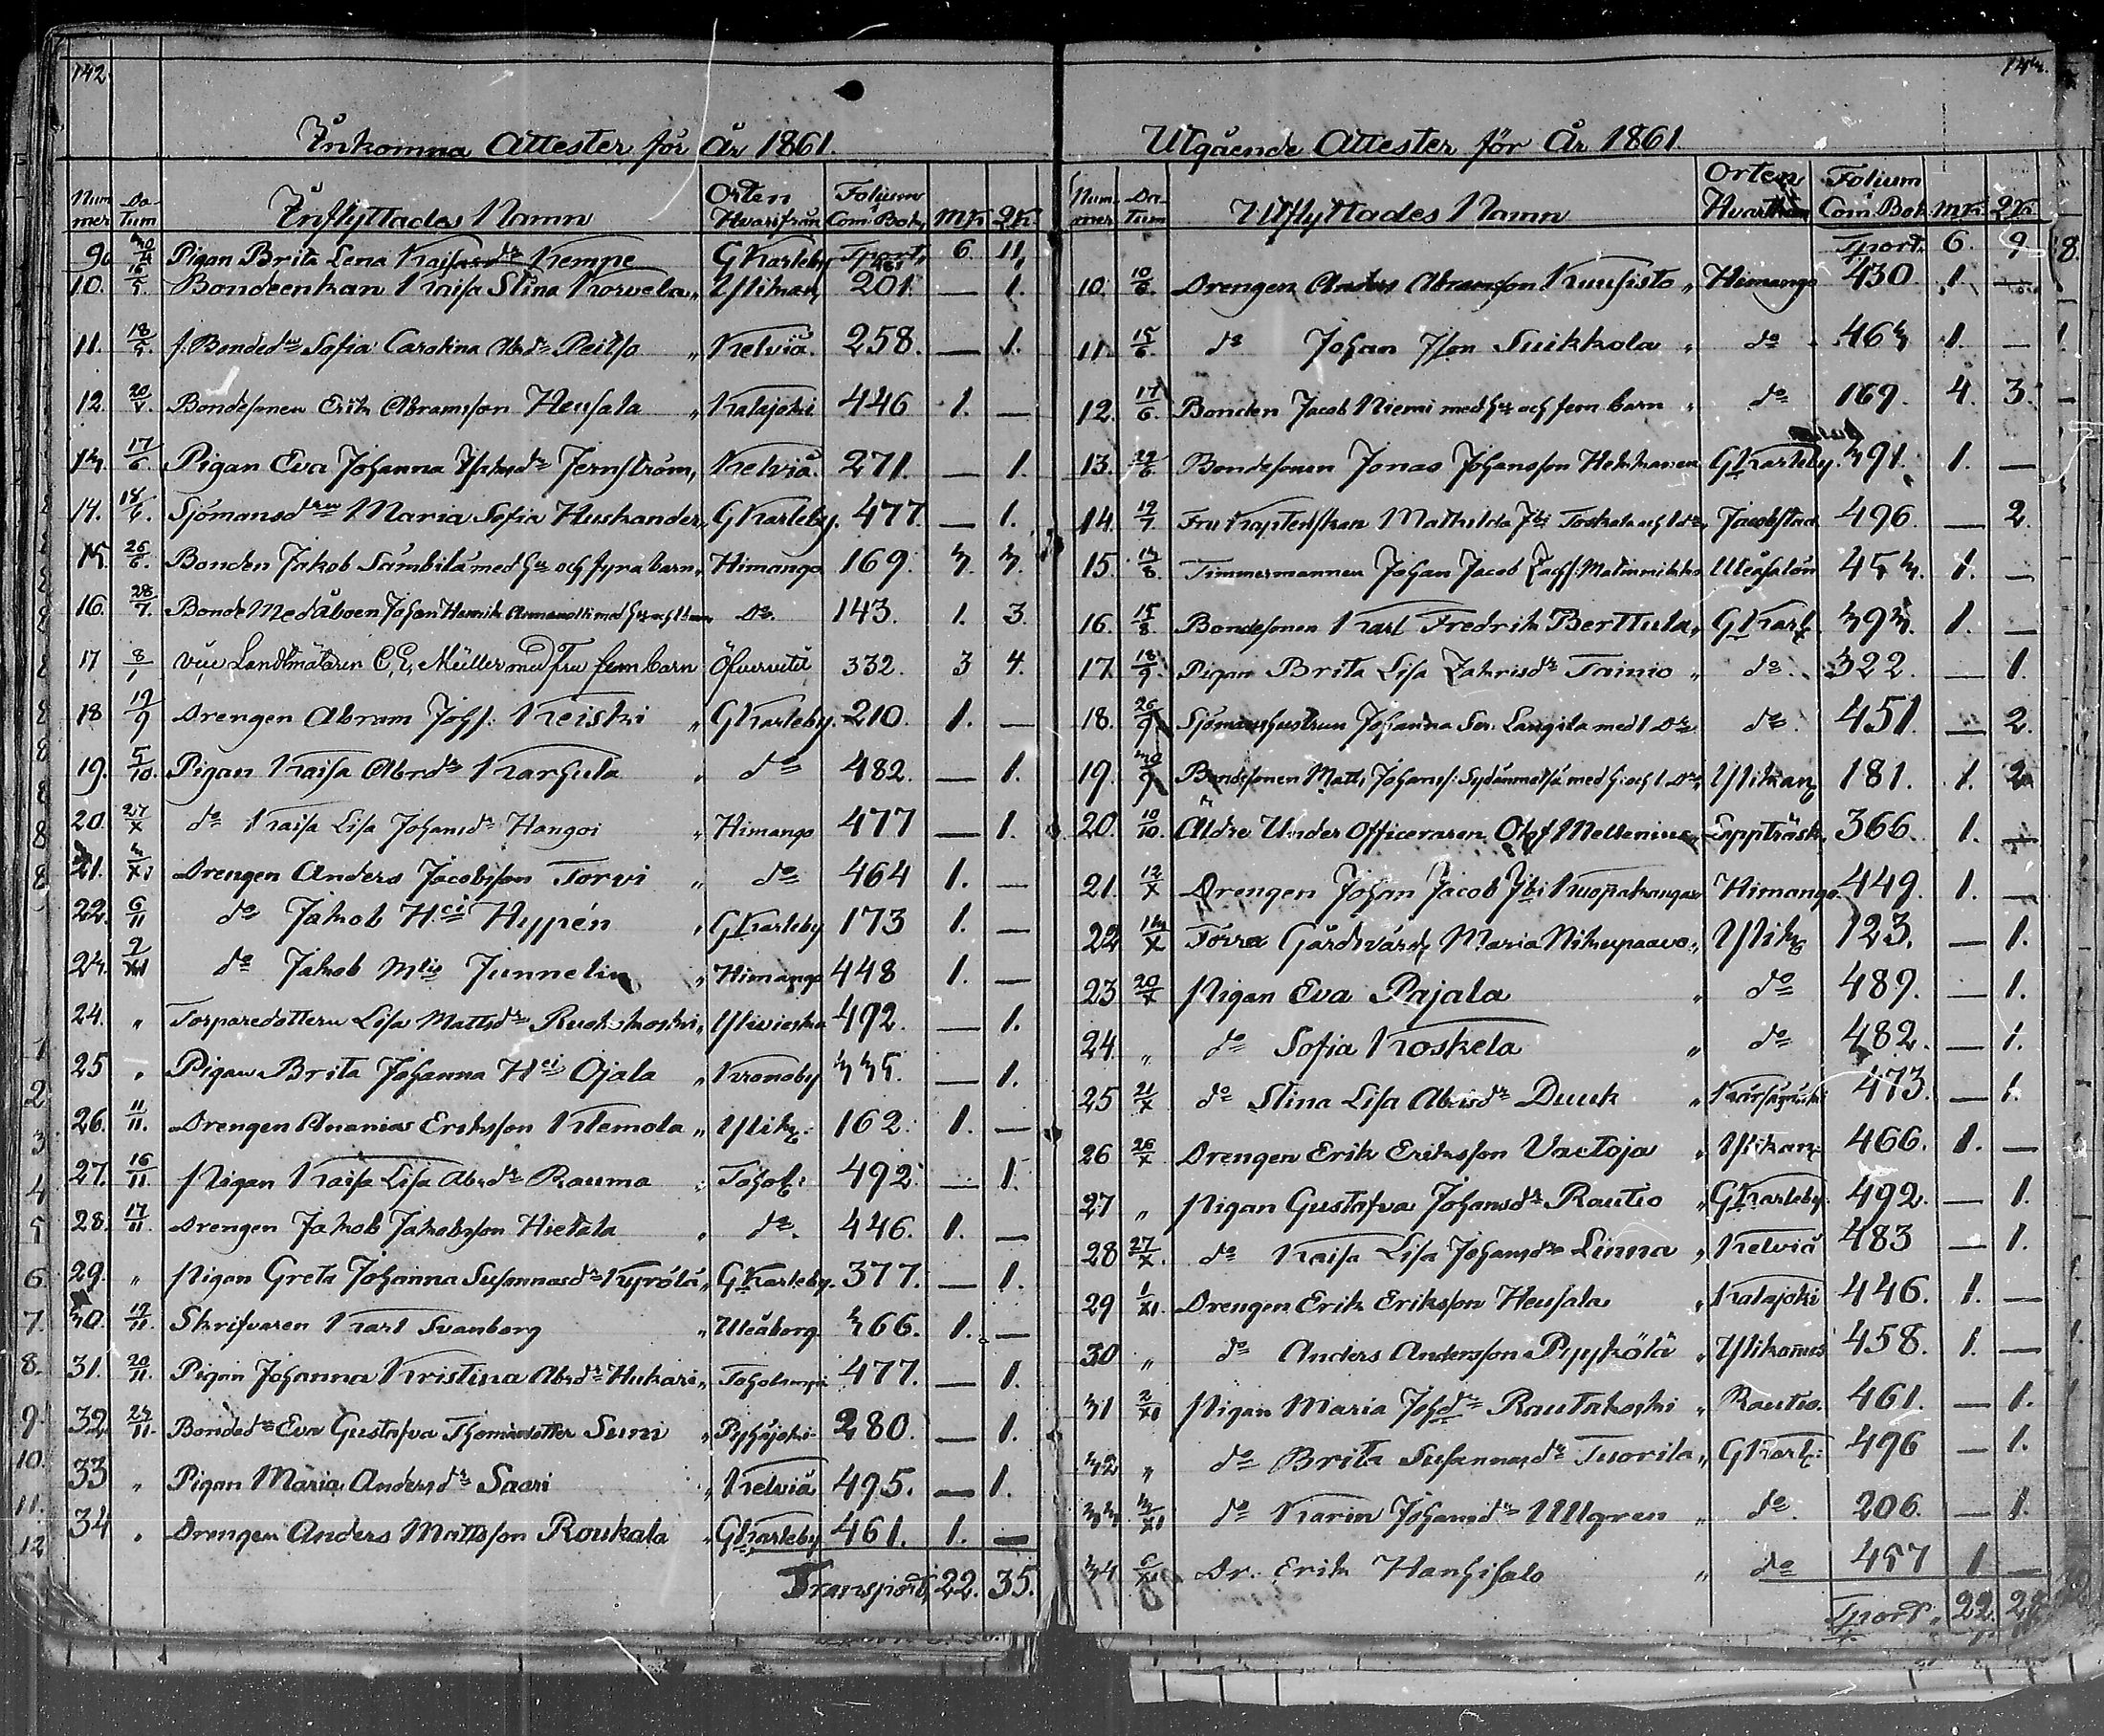 142.
Inkomna Attester för År 1861.
Num mer Da- tum Inflyttades Namn Orten Hvarifrån Folium i Com. Bok. MK. QK.
9. 30/4 Pigan Brita Lena Kaisasdr Kempe G Karleby Tport. 481 6 11.
10. 16/5. Bondeenkan Kaisa Stina Korvela „ Ylikan, 201. — 1.
11. 18/5. f. Bondedn Sofia Carolina Abrdr Peitso „ Kelviå. 258. — 1.
12. 20/V. Bondesonen Erik Abramsson Heusala „ Kalajoki 446 1. —
13. 17/6. Pigan Eva Johanna Isaksdr Jernström, Kelviå. 271. — 1.
14. 18/6. Sjömansdrn Maria Sofia Huskander „ G Karleby. 477. — 1.
15. 26/6. Bonden Jakob Sämbilä med Hu och fyra barn, Himango 169. 3. 3.
16. 28/7. Bonde Medåboen Johan Henrik med Hu och barn Do. 143. 1. 3.
17 8/ Vice Landtmätaren C. E. Müller med Fru fem barn Öfvervetil 332. 3 4.
18 19/9 Drengen Abram Johs. Keiski „ G Karleby. 210. 1. —
19. 5/10. Pigan Kaisa Abrdr Karhula „ do 482. — 1.
20. 27/X do Kaisa Lisa Johansdr Hangoi „ Himango 477 — 1.
21. 3/XI Drengen Anders Jacobsson Torvi „ do 464 1. —
22. 6/11 do Jakob Hci Hyppén „ G Karleby 173 1. —
23. 9/XI do Jakob Mtis Junnelin „ Himango 448 1. —
24. „ Torparedottern Lisa Mattsdr Ruokokoski, Ylivieska 492. — 1.
25 „ Pigan Brita Johanna Hci Ojala „ Kronoby 335. — 1.
26. 11/11. Drengen Ananias Eriksson Klemola „ Ylik: 162. 1. —
27. 16/11 Pigan Kaisa Lisa Abrdr Rauma „ Tohol: 492. — 1.
28. 17/11. Drengen Jakob Jakobsson Hietala „ do. 446. 1. —
29. „ Pigan Greta Johanna Susannasdr Kyrölä „ G Karleby. 377. — 1.
30. 19/11. Skrifvaren Karl Svanborg „ Uleåborg 366. 1. —
31. 20/11. Pigan Johanna Kristina Abrdr Hukari „ Toholampi 477. — 1.
32. 24/11. Bondedr Eva Gustafva Thomasdotter Suni „ Pyhäjoki 280. — 1.
33 „ Pigan Maria Andersdr Saari „ Kelviå 495. — 1.
34 „ Drengen Anders Mattsson Roukala „ G Karleby 461. 1. —
Transport, 22. 35.
Utgående Attester för År 1861.
Num- mer Da- tum Utflyttades Namn Orten Hvarthän Folium i Com. Bok. MK. QK.
Tport. 6. 9
10. 10/6. Drengen Anders Abramsson Kuusisto „ Himango 430. 1. —
11. 15/6. do Johan Json Suikkola „ do 463 1. —
12. 17/6. Bonden Jacob Niemi med Hu och fem barn „ do 169. 4. 3.
13. 22/6 Bondesonen Jonas Johansson Hehkonen G Karleby. 391. 1. —
14. 19/7. Fru Kaptenskan Mathilda Toskala och 1 dr, Jacobstad 496. — 2.
15. 13/8 Timmermannen Johan Jacob Matinmikko Uleåsalon 453. 1. —
16. 15/8. Bondesonen Karl Fredrik Berttula, G Karl: 393. 1. —
17. 18/9. Pigan Brita Lisa Zakrisdr Tainio „ do. 322. — 1.
18. 26/9 Sjömanshustrun Johanna Langila med 1 Dr do. 451. — 2.
19. 30/9 Bondesonen Matts Johans: Sydänmetsä med H: och 1 Dr, Ylikan, 181. 1. 2
20. 10/10. Äldre Under Officeraren Olof Mellenius, Lappträsk, 366. 1. —
21. 12/X Drengen Johan Jacob Jbi Kuopakangas Himango. 449. 1. —
22 13/X Förra Gårdsvärd: Maria Nikupaavo „ Ylik: 123. — 1.
23 20/X Pigan Eva Pajala „ do 489. — 1.
24. „ do Sofia Koskela „ do 482. — 1.
25 21/X do Stina Lisa Abrisdr Duuk „ Kärsämäki 473. — 1.
26 26/X Drengen Erik Eriksson Vactoja „ Ylikan: 466. 1. —
27 „ Pigan Gustafva Johansdr Rautio „ G Karleby. 492. — 1.
28 27/X. do Kaisa Lisa Johansdr Linna „ Kelviå 483 — 1.
29 1/XI. Drengen Erik Eriksson Heusala „ Kalajoki 446. 1. —
30 „ do Anders Andersson Pyykölä „ Ylikannus 458. 1. —
31 2/XI Pigan Maria Johdr Rautakoski „ Rautio. 461. — 1.
32 „ do Brita Susannasdr Tuorila „ G Karl: 496 — 1.
33 3/XI do Karin Johansdr Ullgren „ do. 206. — 1.
34 6/XI Dr. Erik Hanhisalo „ do 457 1 —
Tport. 22.